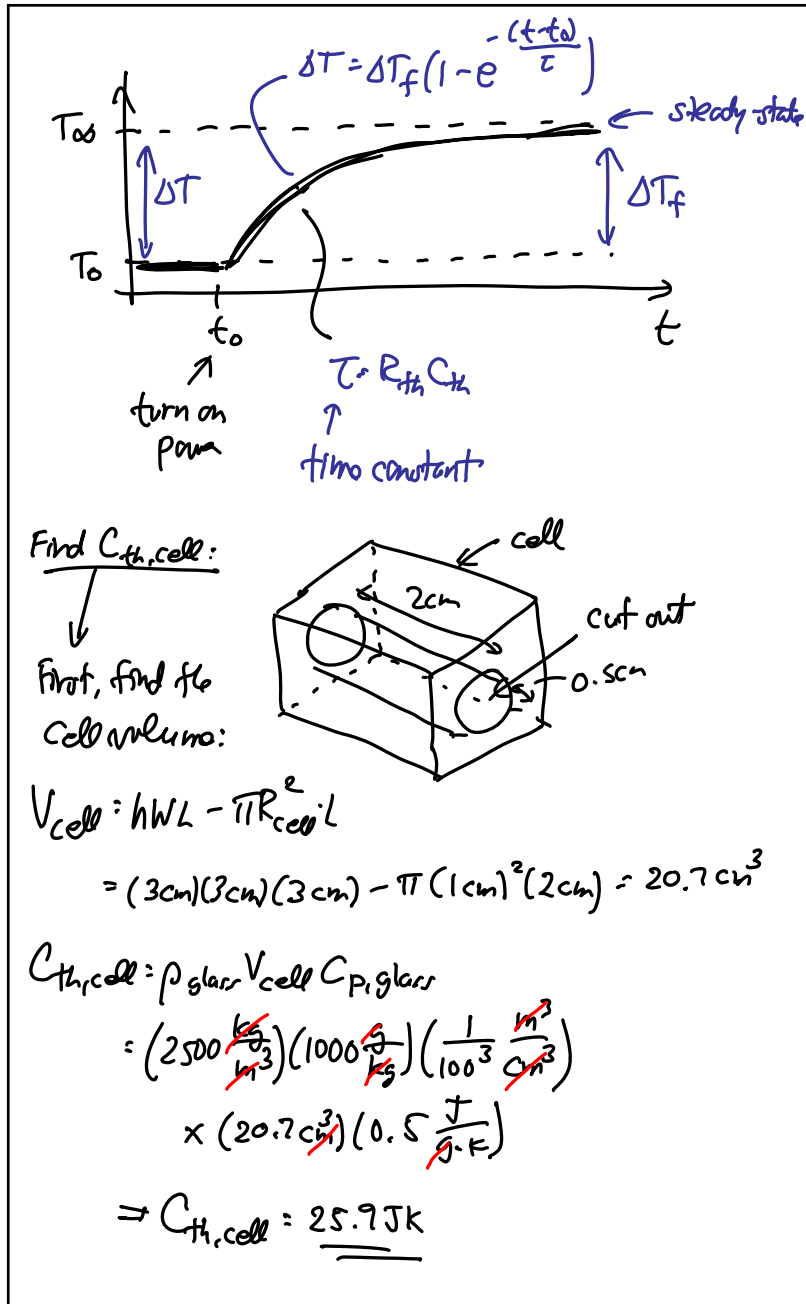 ΔT = ΔT_f(1 - e^{-(t-t_0)/τ})
T_∞
steady-state
ΔT
ΔT_f
T_0
t_0
t
turn on
τ = R_th C_th
time constant
Find C_th,cell:
cell
2cm
cut out
0.5cm
First, find the
cell volume:
V_cell = hWL - πR_cell^2·L
= (3cm)(3cm)(3cm) - π(1cm)^2(2cm) = 20.7cm^3
C_th,cell = ρ_glass V_cell C_p,glass
= (2500 kg/m^3)(1000 g/kg)(1/100^3 m^3/cm^3)
× (20.7cm^3)(0.5 J/g·K)
⇒ C_th,cell = 25.9JK